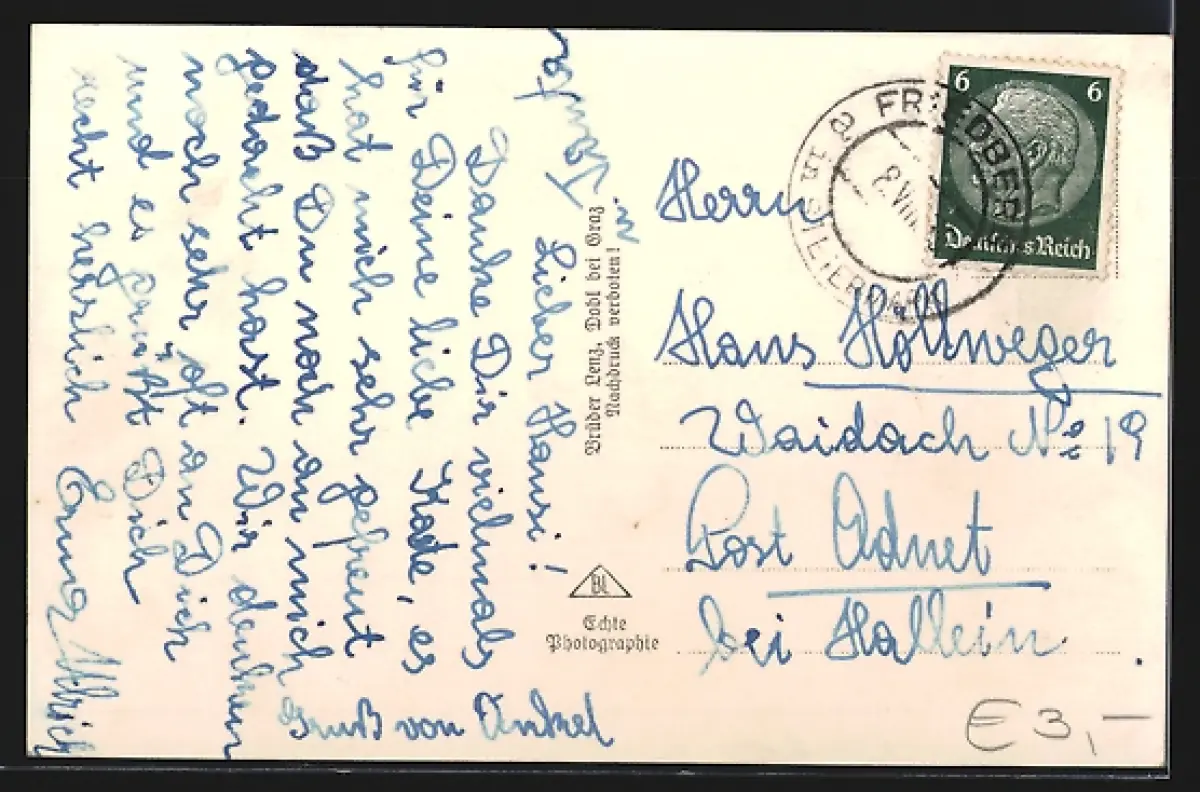 Lieber Hansi!
Danke Dir vielmals
für Deine liebe Kade, es
hat mich sehr gefreut
daß Du noch an mich
gedacht hast. Wir denken
noch sehr oft an Dich
und es grüßt Dich
recht herzlich
Gruß von Onkel
Brüder Lenz, Dobl bei Graz
Nachdruck verboten!
BL
Echte
Photographie
6 6
Deutsches Reich
FRIEDBERG
in STEIERMARK
Herrn
Hans Hollweger
Waidach No 19
Post Adnet
bei Hallein.
€ 3,—